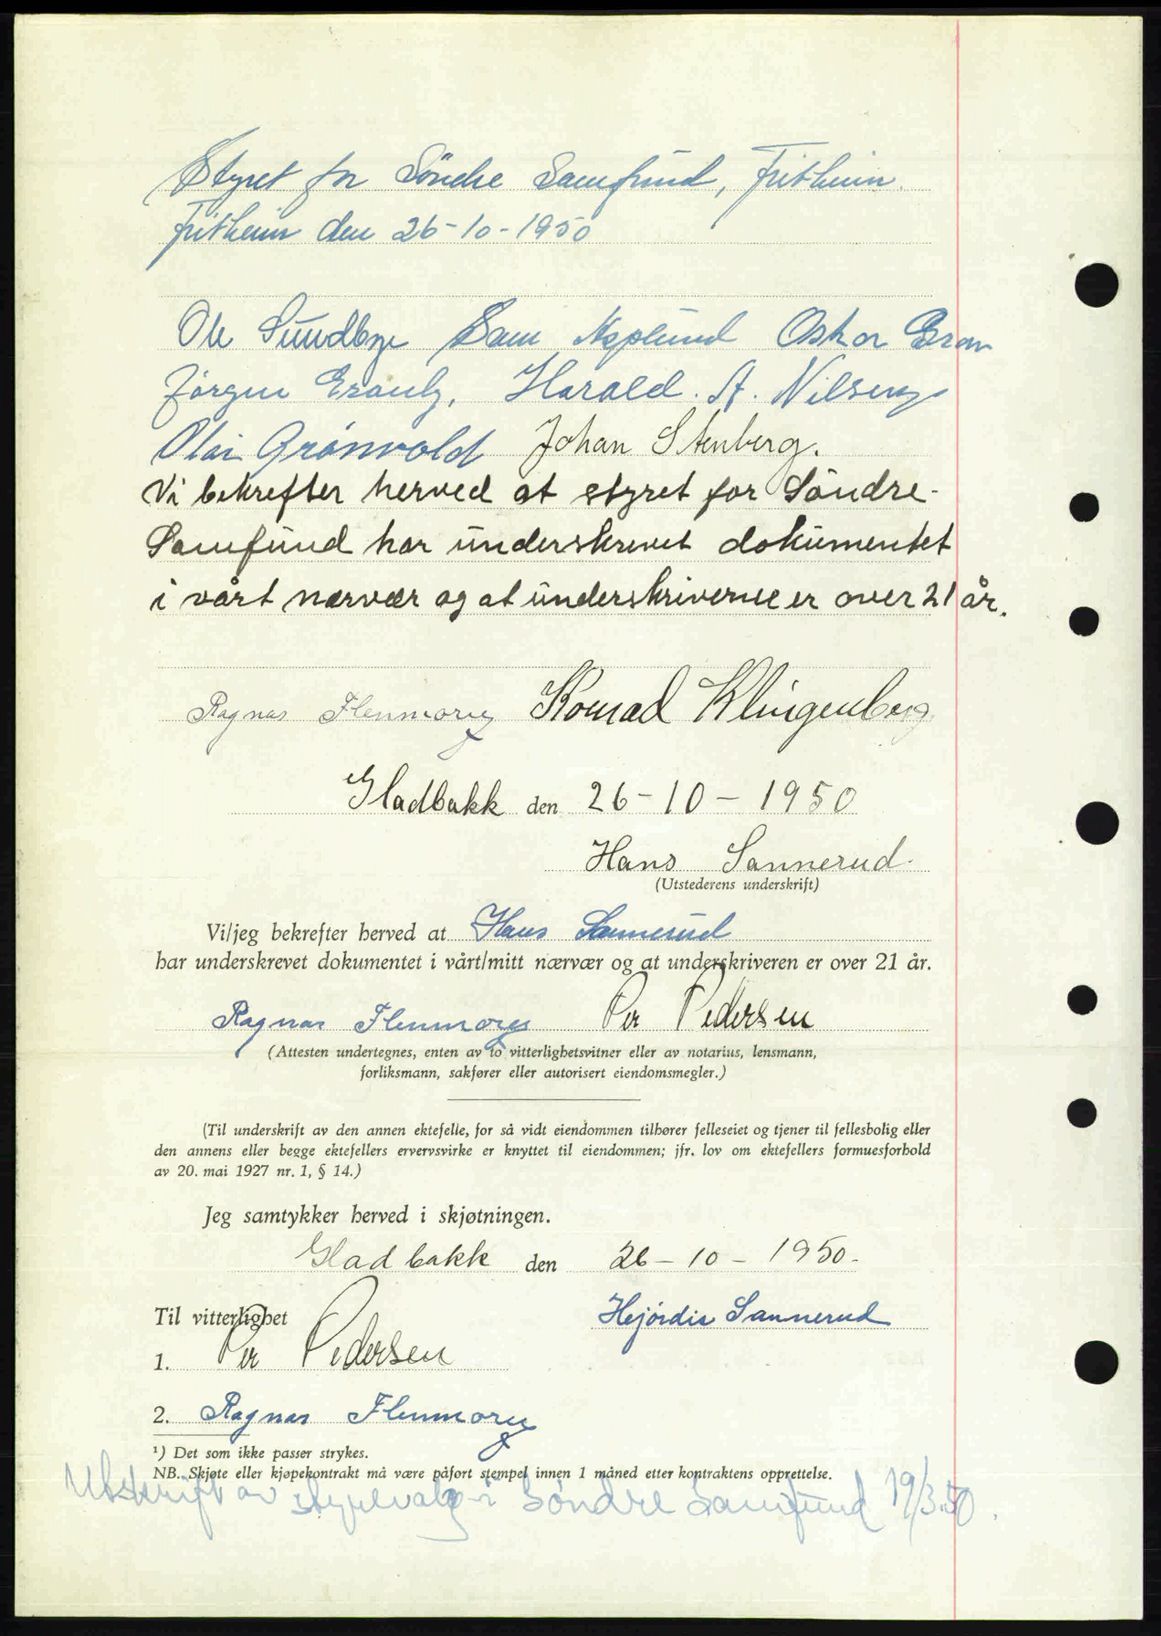 Styret for Söndre Samfund, Fritheim.
Fritheim den 26-10-1950
Ole Sundbye Sam Asplund Oskar Bran
Jörgen Harald. A. Nilsen
Olai Grönvold Johan Stenberg.
Vi bekrefter herved at styret for Söndre-
Samfund har underskrevet dokumentet
i vårt nærvær og at underskriverne er over 21 år.
Ragnar Flenmoreg Konrad Klingenberg
Gladbakk den 26-10-1950
Hans Sannerud.
(Utstederens underskrift)
Vi/jeg bekrefter herved at Hans Sannerud
har underskrevet dokumentet i vårt/mitt nærvær og at underskriveren er over 21 år.
Ragnar Per Pedersen
(Attesten undertegnes, enten av to vitterlighetsvitner eller av notarius, lensmann,
forliksmann, sakfører eller autorisert eiendomsmegler.)
(Til underskrift av den annen ektefelle, for så vidt eiendommen tilhører felleseiet og tjener til fellesbolig eller
den annens eller begge ektefellers ervervsvirke er knyttet til eiendommen; jfr. lov om ektefellers formuesforhold
av 20. mai 1927 nr. 1, § 14.)
Jeg samtykker herved i skjøtningen.
Gladbakk den 26-10-1950.
Til vitterlighet Hejördis Sannerud
1. Per Pedersen
2. Ragnar
¹) Det som ikke passer strykes.
NB. Skjøte eller kjøpekontrakt må være påført stempel innen 1 måned etter kontraktens opprettelse.
Utskrift av styrevalg i Söndre Samfund 19/3.50.